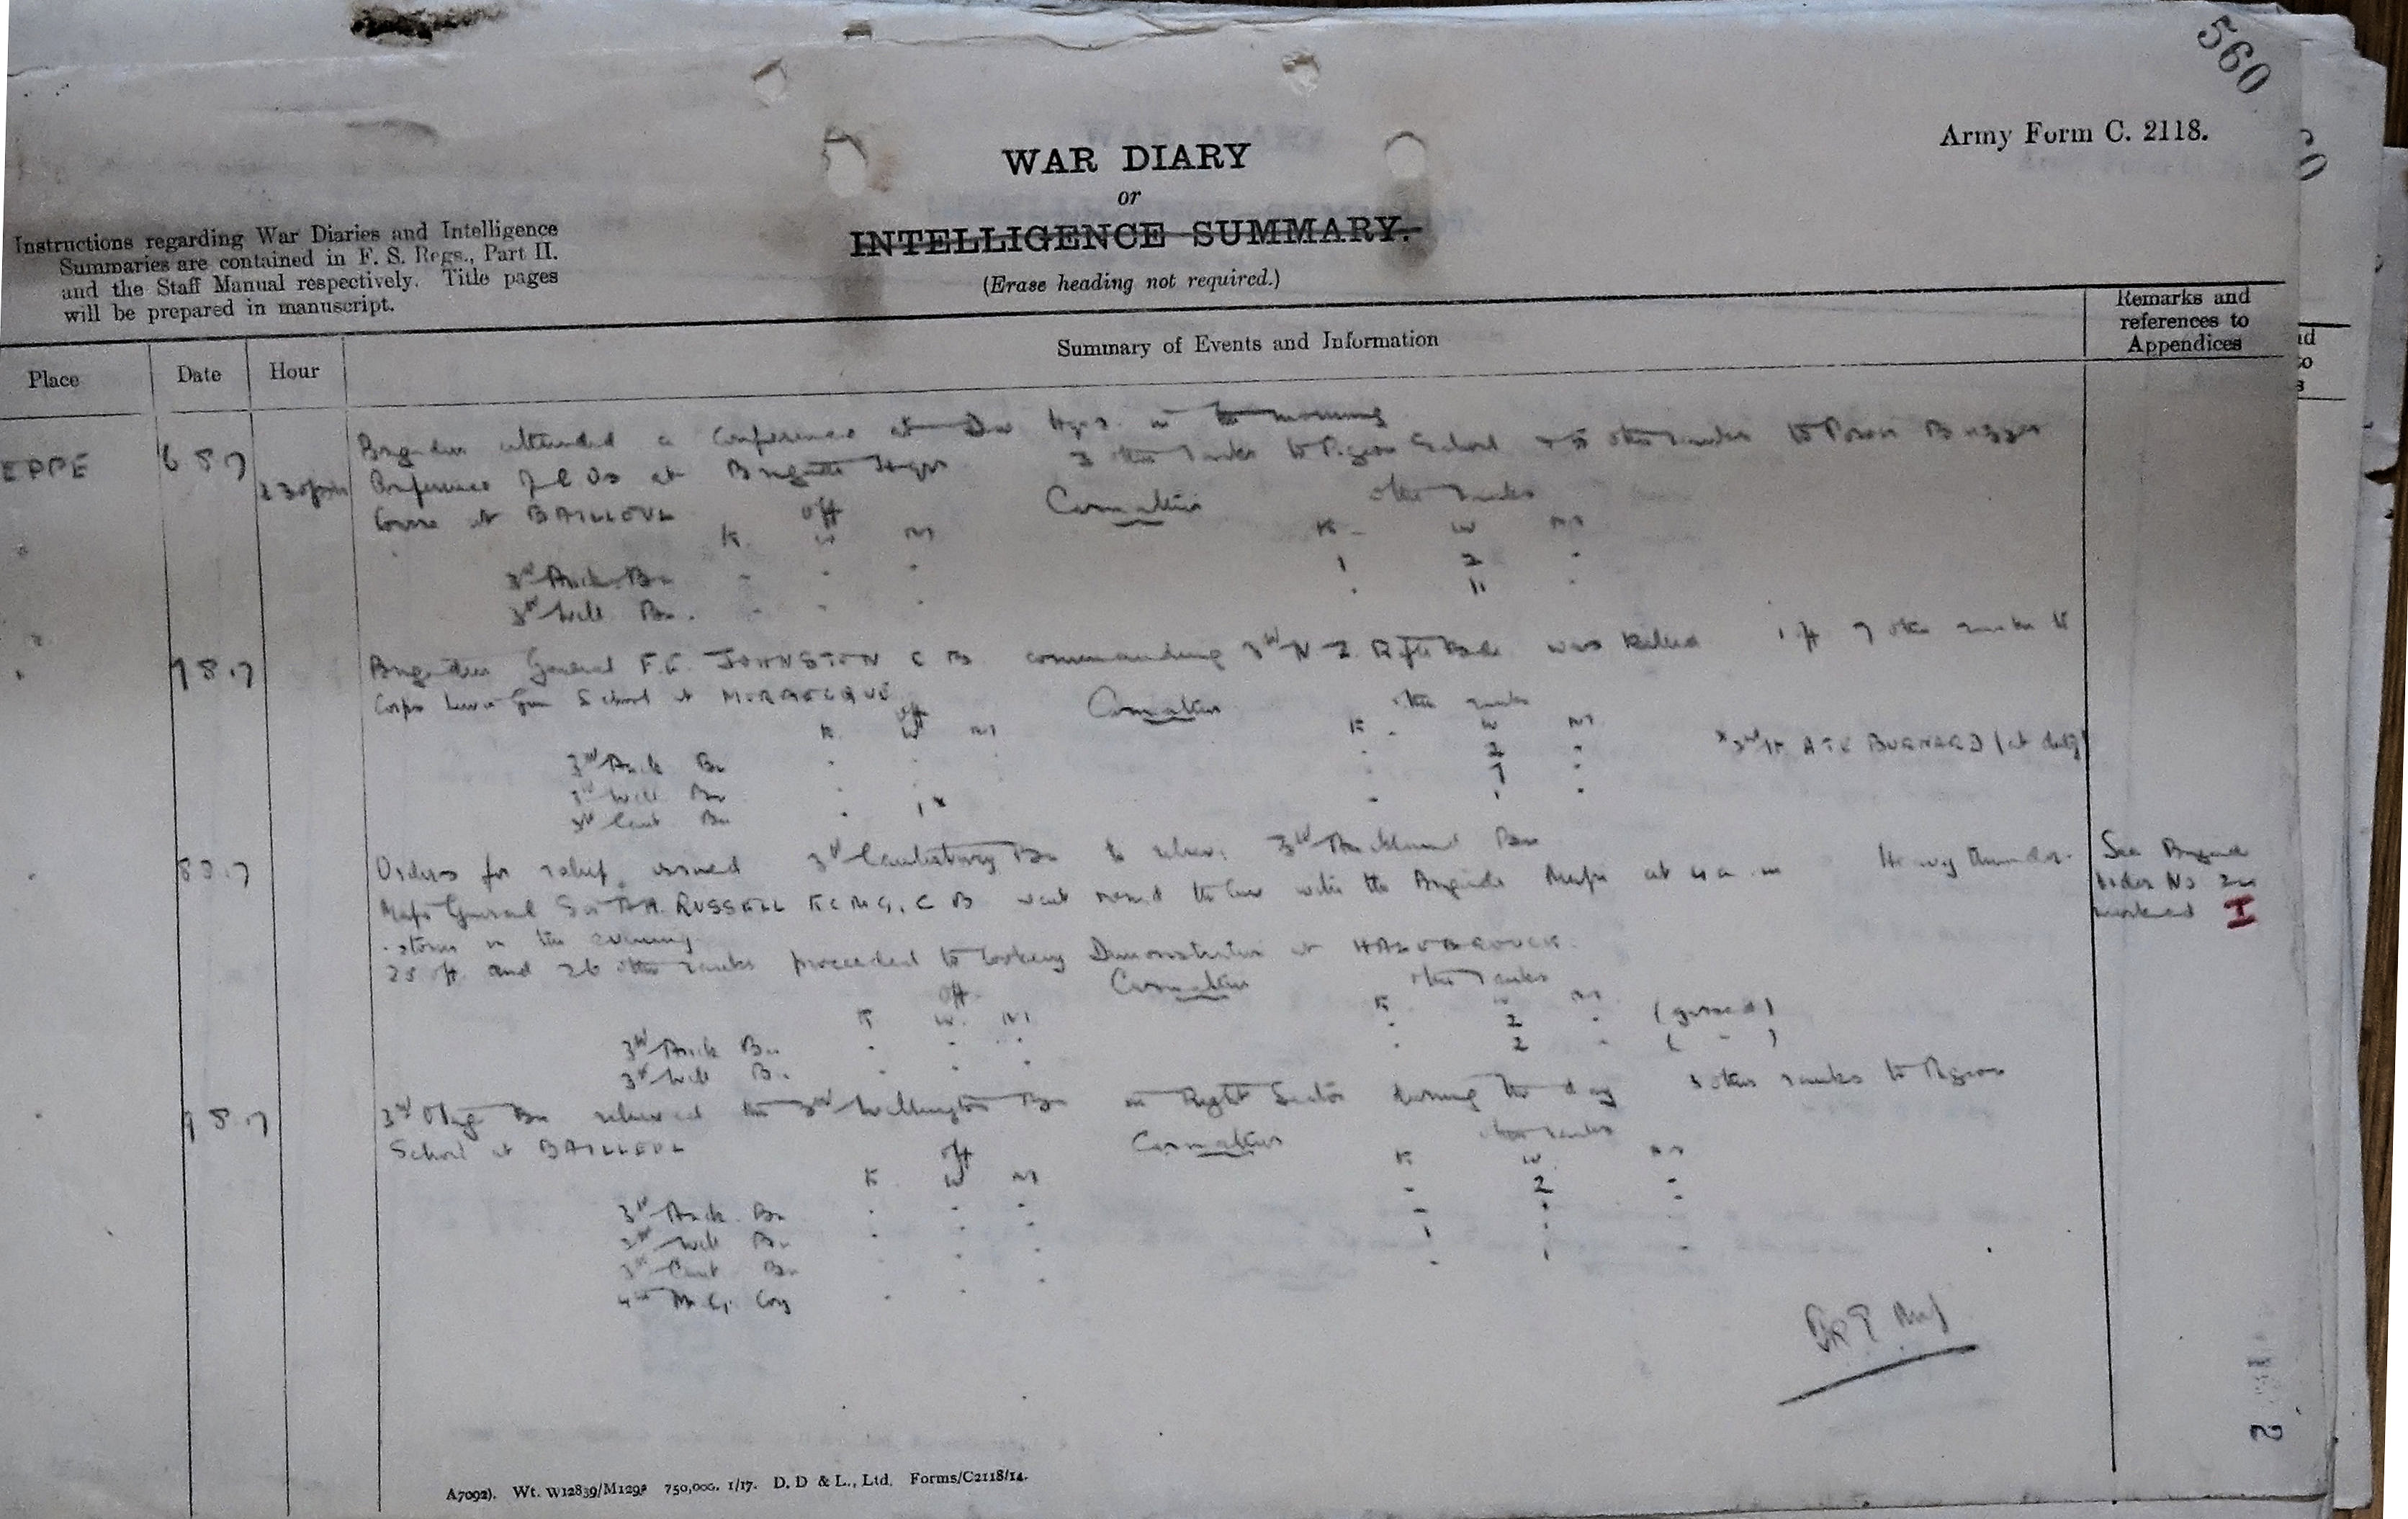 560
Army Form C. 2118.
WAR DIARY
or
INTELLIGENCE SUMMARY.
(Erase heading not required.)
Instructions regarding War Diaries and Intelligence
Summaries are contained in F. S. Regs., Part II.
and the Staff Manual respectively. Title pages
will be prepared in manuscript.
Place Date Hour Summary of Events and Information Remarks and
references to
Appendices
EPPE 6 8 17 Brigadier attended a Conference at Div Hqrs. in the morning
Conference of C Os at Brigade Hqrs 3 other ranks to Pigeon School & 5 other ranks to
Course at BAILLEUL Off Casualties other ranks
K. W M K - W M
3rd Auck. Bn - - - 1 2 -
3rd Well Bn. - - - . 11 -
7 8.17 Brigadier General F.E. JOHNSTON C B commanding 3rd N Z Rifle Bde was killed 1 off 7 other ranks to
Corps Lewis Gun School at Off Casualties other ranks
K. W M K - W M
3rd Auck Bn 2
3rd Well Bn 7
3rd Cant Bn 1x x 2nd Lt BURNARD (at duty)
8 8.17 Orders for relief issued 3rd Canterbury Bn to relieve 3rd Auckland Bn
Major General Sir A.H. RUSSELL K C M G, C B went round the line with the Brigade Major at 4 a m Heavy thunder-
-storm in the evening
25 off and 26 other ranks proceeded to Cookery Demonstration at HAZEBROUCK.
See Brigade
Order No
marked I
Off Casualties other ranks
K W. M K W M
3rd Auck Bn - - - - 2 - (gassed)
3rd Well Bn. - - - - 2 - ( " )
9 8.17 3rd Otago Bn relieved the 3rd Wellington Bn in Right Sector during the day other ranks to Pigeon
School at BAILLEUL Off Casualties other ranks
K W M K W. M
3rd Auck. Bn - - - - 2 -
3rd Well Bn
3rd Cant Bn
4th M.G. Coy
2
A7092). Wt. W12839/M1298 750,000. 1/17. D. D & L., Ltd. Forms/C2118/14.